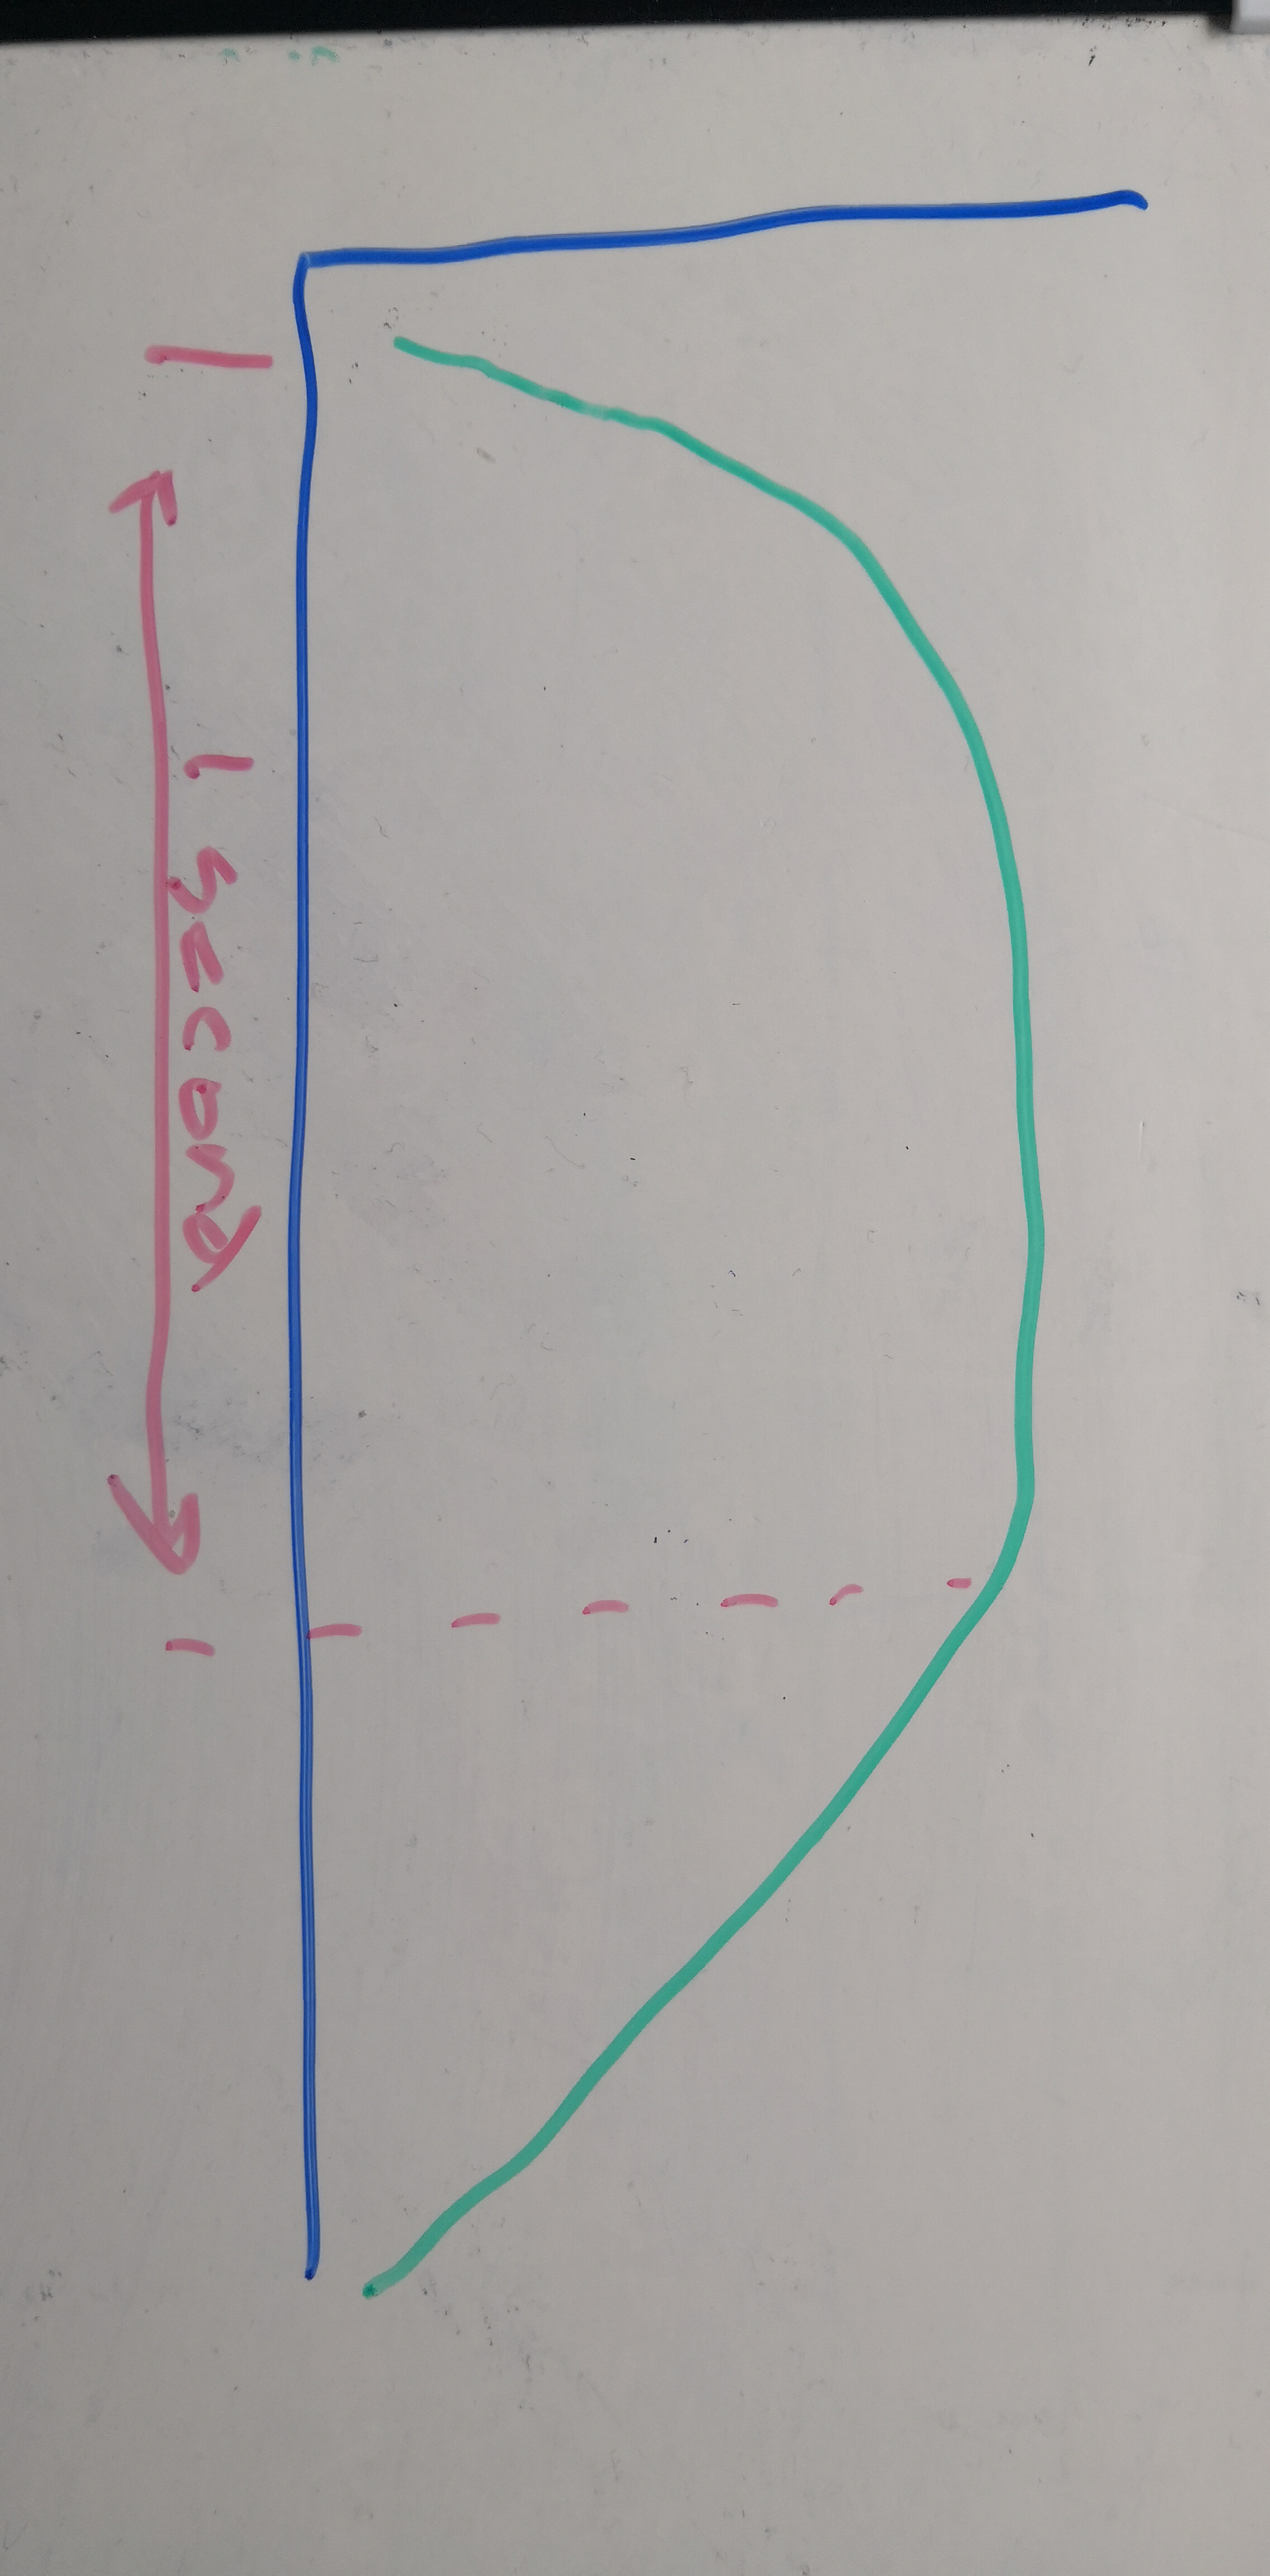 1 second